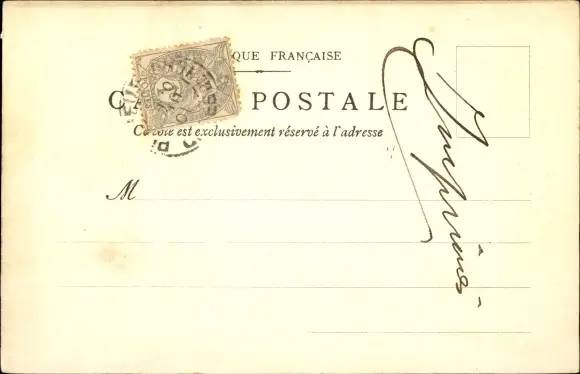 QUE FRANÇAISE
C POSTALE
Ce côté est exclusivement réservé à l'adresse
M
Imprimés